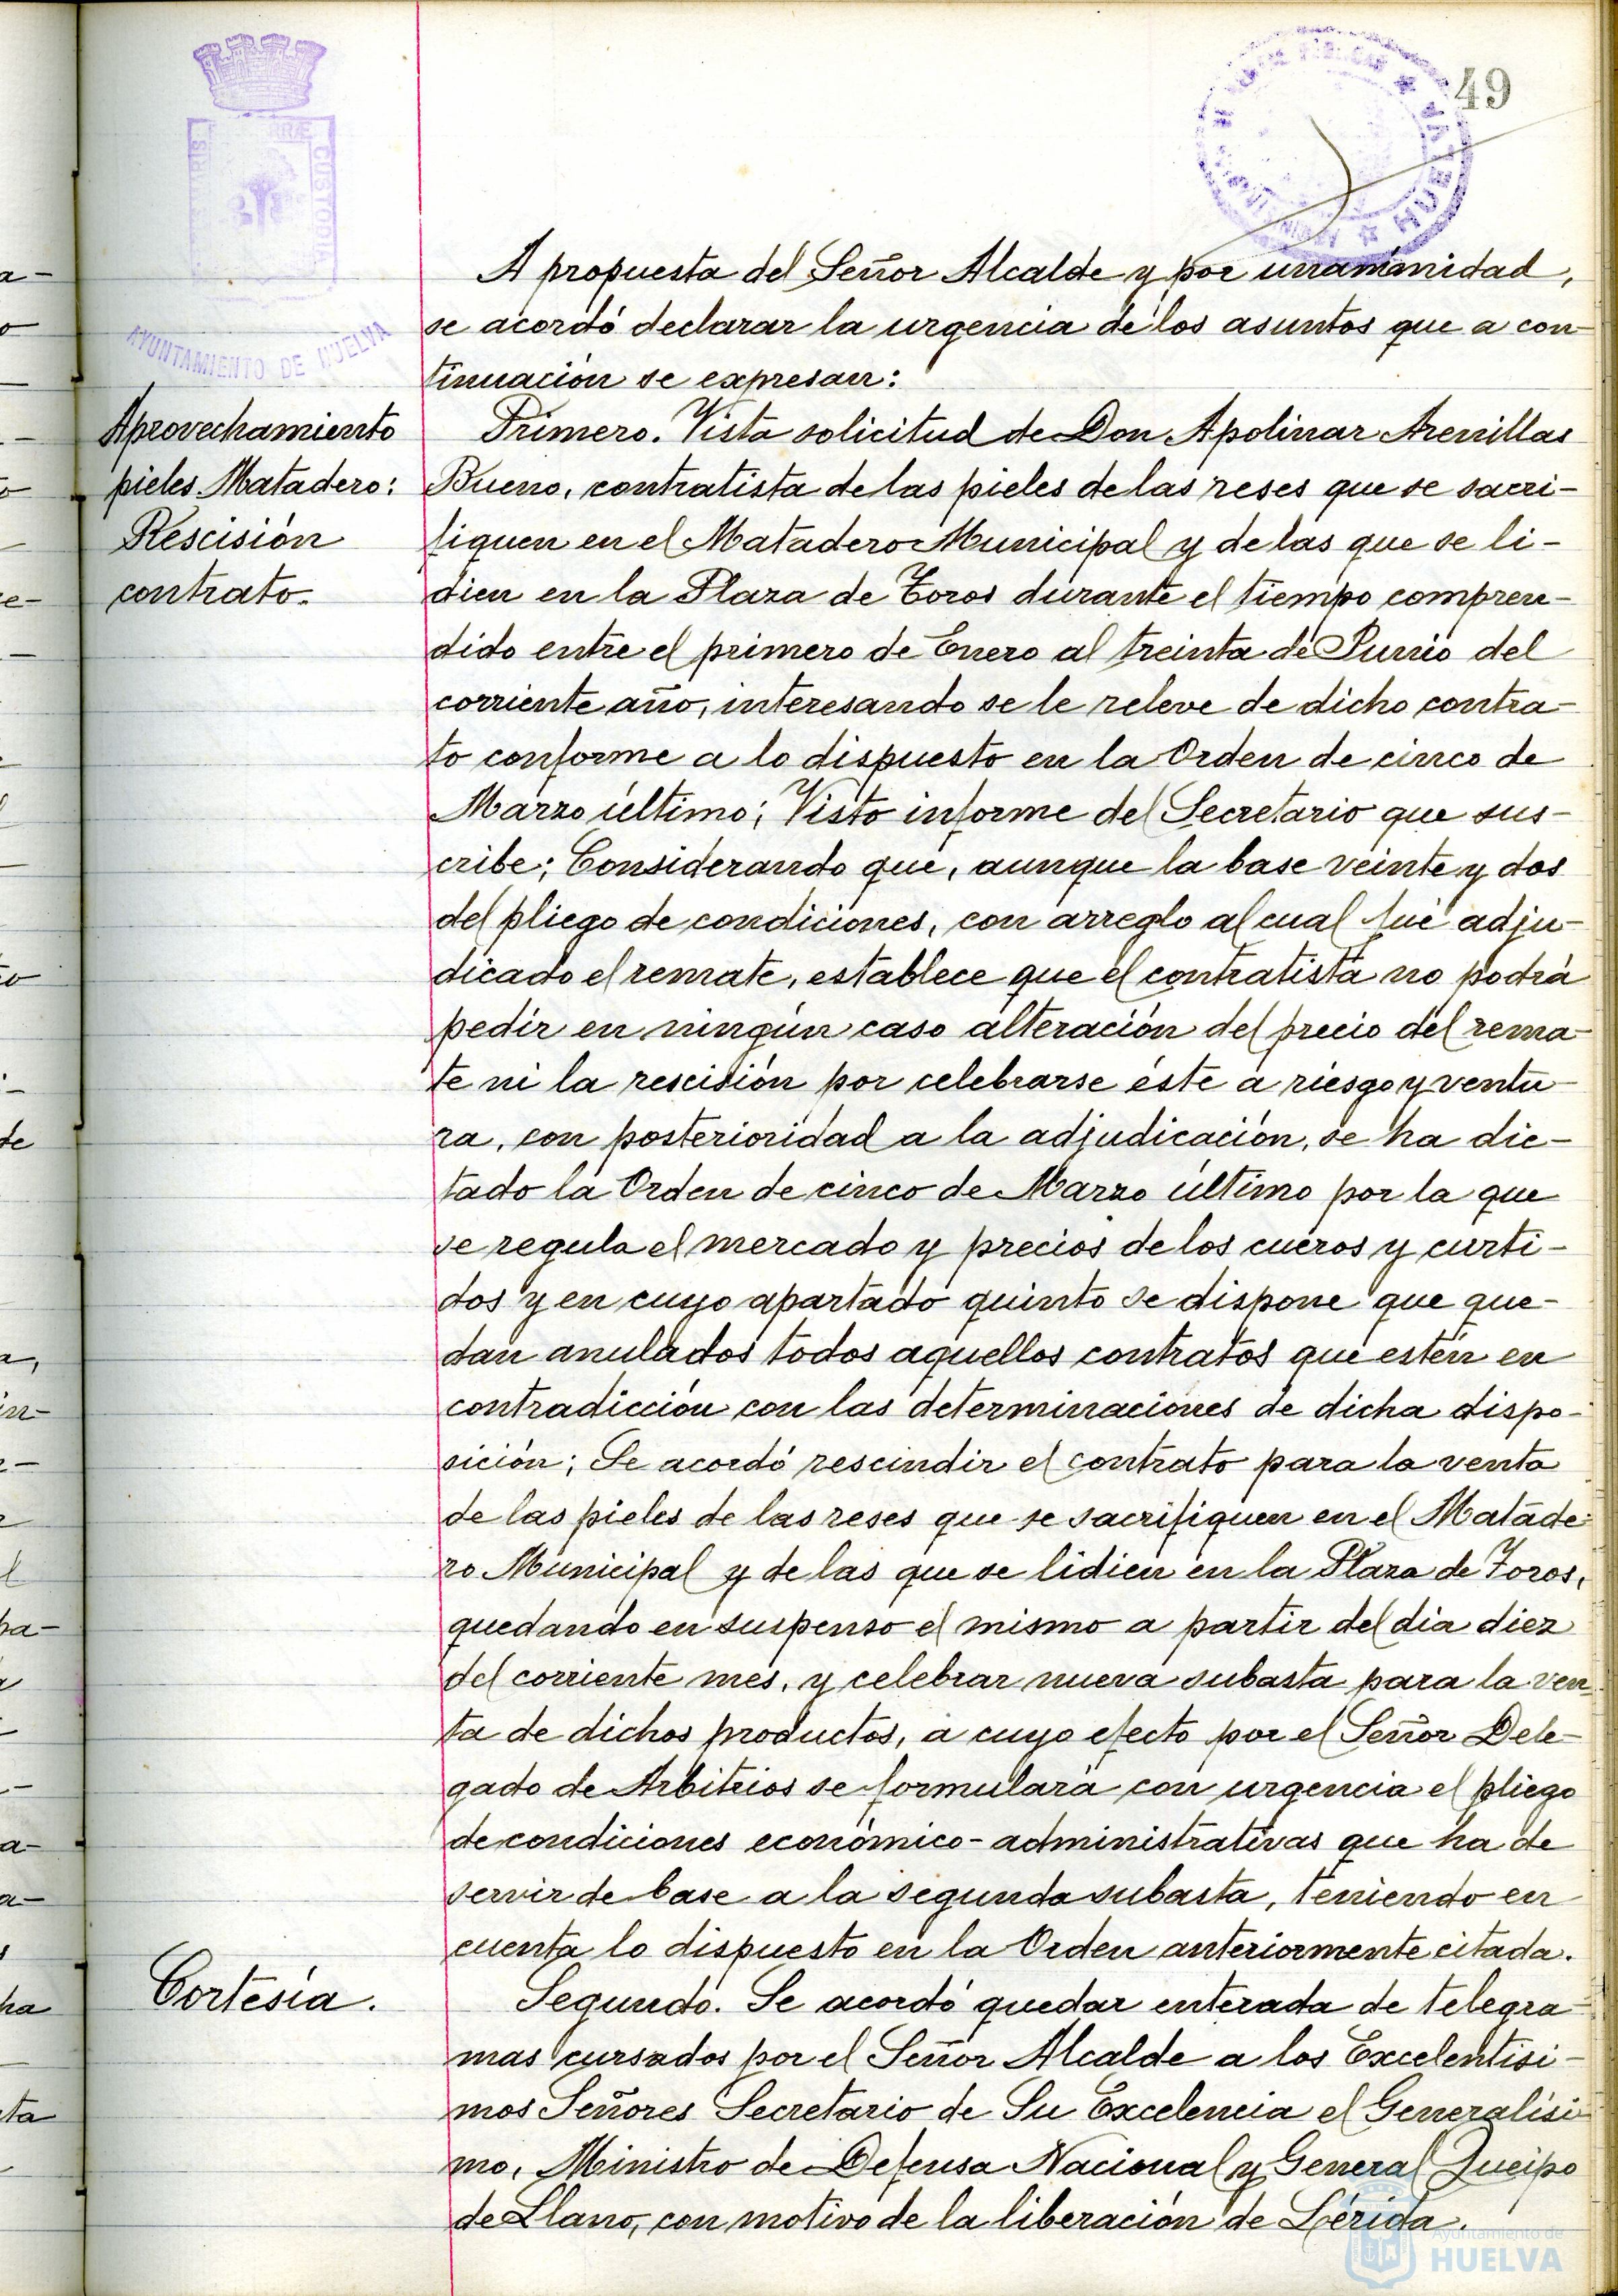 49
CUSTODIA
AYUNTAMIENTO DE HUELVA
HUELVA
A propuesta del Señor Alcalde y por unanimidad,
se acordó declarar la urgencia de los asuntos que a con-
tinuación se expresan:
Aprovechamiento
pieles Matadero:
Rescisión
contrato.
Primero. Vista solicitud de Don Apolinar Arenillas
Bueno, contratista de las pieles de las reses que se sacri-
fiquen en el Matadero Municipal y de las que se li-
dien en la Plaza de Toros durante el tiempo compren-
dido entre el primero de Enero al treinta de Junio del
corriente año, interesando se le releve de dicho contra-
to conforme a lo dispuesto en la Orden de cinco de
Marzo último; Visto informe del Secretario que sus-
cribe; Considerando que, aunque la base veinte y dos
del pliego de condiciones, con arreglo al cual fué adju-
dicado el remate, establece que el contratista no podrá
pedir en ningún caso alteración del precio del rema-
te ni la rescisión por celebrarse éste a riesgo y ventu-
ra, con posterioridad a la adjudicación, se ha dic-
tado la Orden de cinco de Marzo último por la que
se regula el mercado y precios de los cueros y curti-
dos y en cuyo apartado quinto se dispone que que-
dan anulados todos aquellos contratos que estén en
contradicción con las determinaciones de dicha dispo-
sición; Se acordó rescindir el contrato para la venta
de las pieles de las reses que se sacrifiquen en el Matade-
ro Municipal y de las que se lidien en la Plaza de Toros,
quedando en suspenso el mismo a partir del día diez
del corriente mes, y celebrar nueva subasta para la ven-
ta de dichos productos, a cuyo efecto por el Señor Dele-
gado de Arbitrios se formulará con urgencia el pliego
de condiciones económico-administrativas que ha de
servir de base a la segunda subasta, teniendo en
cuenta lo dispuesto en la Orden anteriormente citada.
Cortesía.
Segundo. Se acordó quedar enterada de telegra-
mas cursados por el Señor Alcalde a los Excelentísi-
mos Señores Secretario de Su Excelencia el Generalísi-
mo, Ministro de Defensa Nacional y General Queipo
de Llano, con motivo de la liberación de Lérida.
Ayuntamiento de
HUELVA